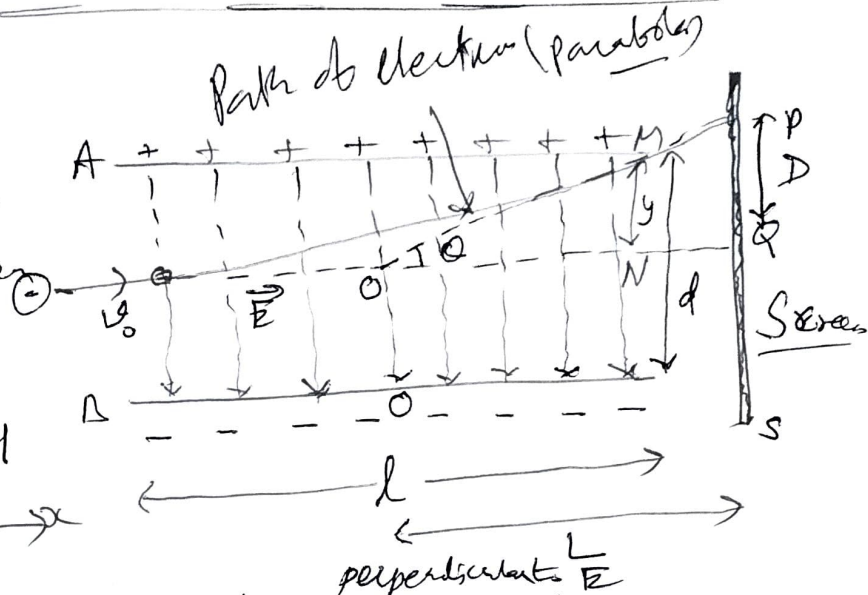 Path of electron (parabola)
A + + + + + + + M
P
D
y
Q
v₀
E
O
θ
N
d
Screen
B
O
- - - - - - - -
S
l
x
L
perpendicular to E